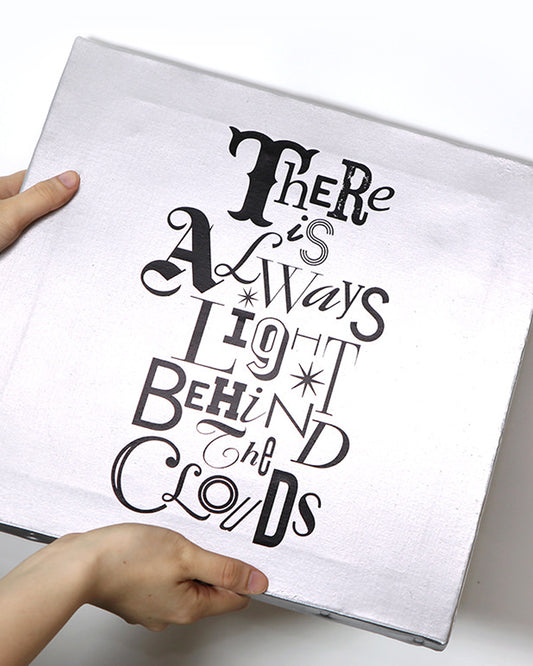 THeRe
iS
ALWayS
LIgHT
BEHiND
The
CLOUDS